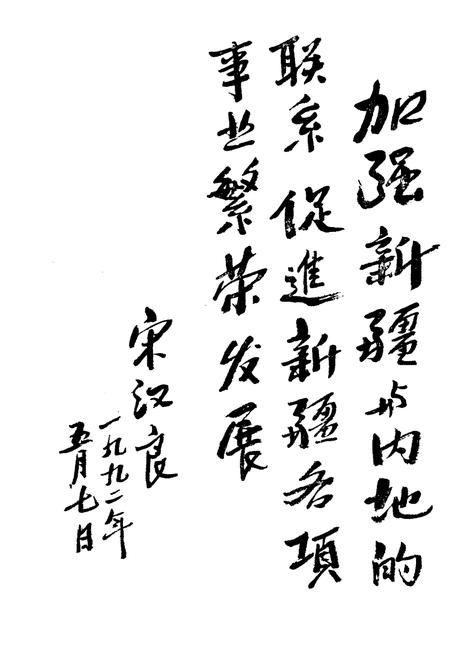 加强新疆与内地的
联系促進新疆各項
事业繁荣发展
宋汉良
一九九二年
五月七日